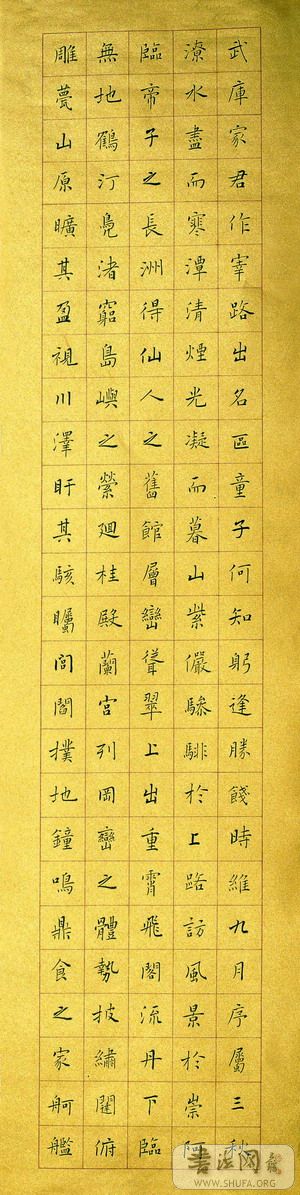 武庫家君作宰路出名區童子何知躬逢勝餞時維九月序屬三秋
潦水盡而寒潭清煙光凝而暮山紫儼驂騑於上路訪風景於崇阿
臨帝子之長洲得仙人之舊館層巒聳翠上出重霄飛閣流丹下臨
無地鶴汀鳧渚窮島嶼之縈廻桂殿蘭宮列岡巒之體勢披繡闥俯
雕甍山原曠其盈視川澤盱其駭矚閭閻撲地鐘鳴鼎食之家舸艦
书法网
WWW.SHUFA.ORG